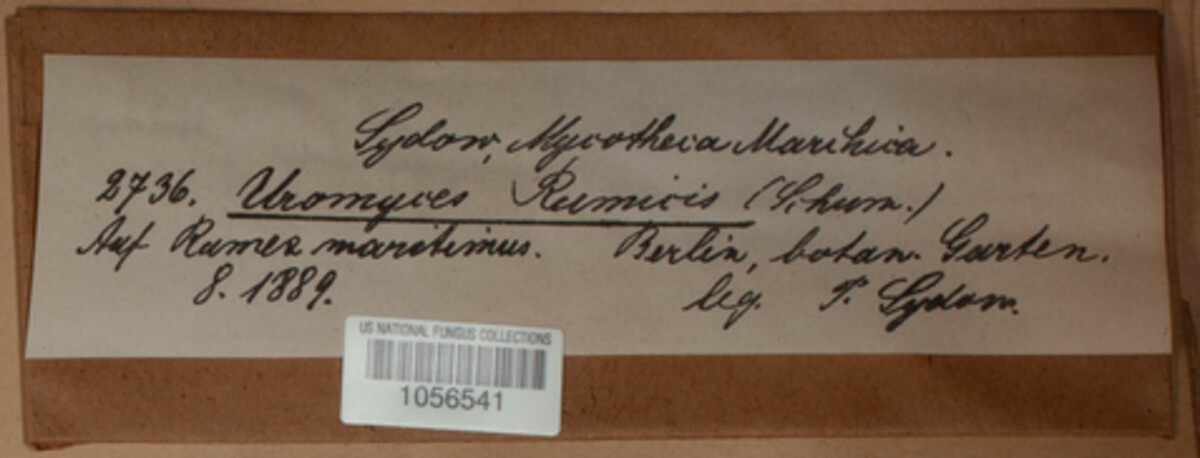 Sydow, Mycotheca Marchica.
2736. Uromyces Rumicis (Schum.)
Auf Rumex maritimus. Berlin, botan. Garten.
8. 1889. leg. P. Sydow.
US NATIONAL FUNGUS COLLECTIONS
1056541